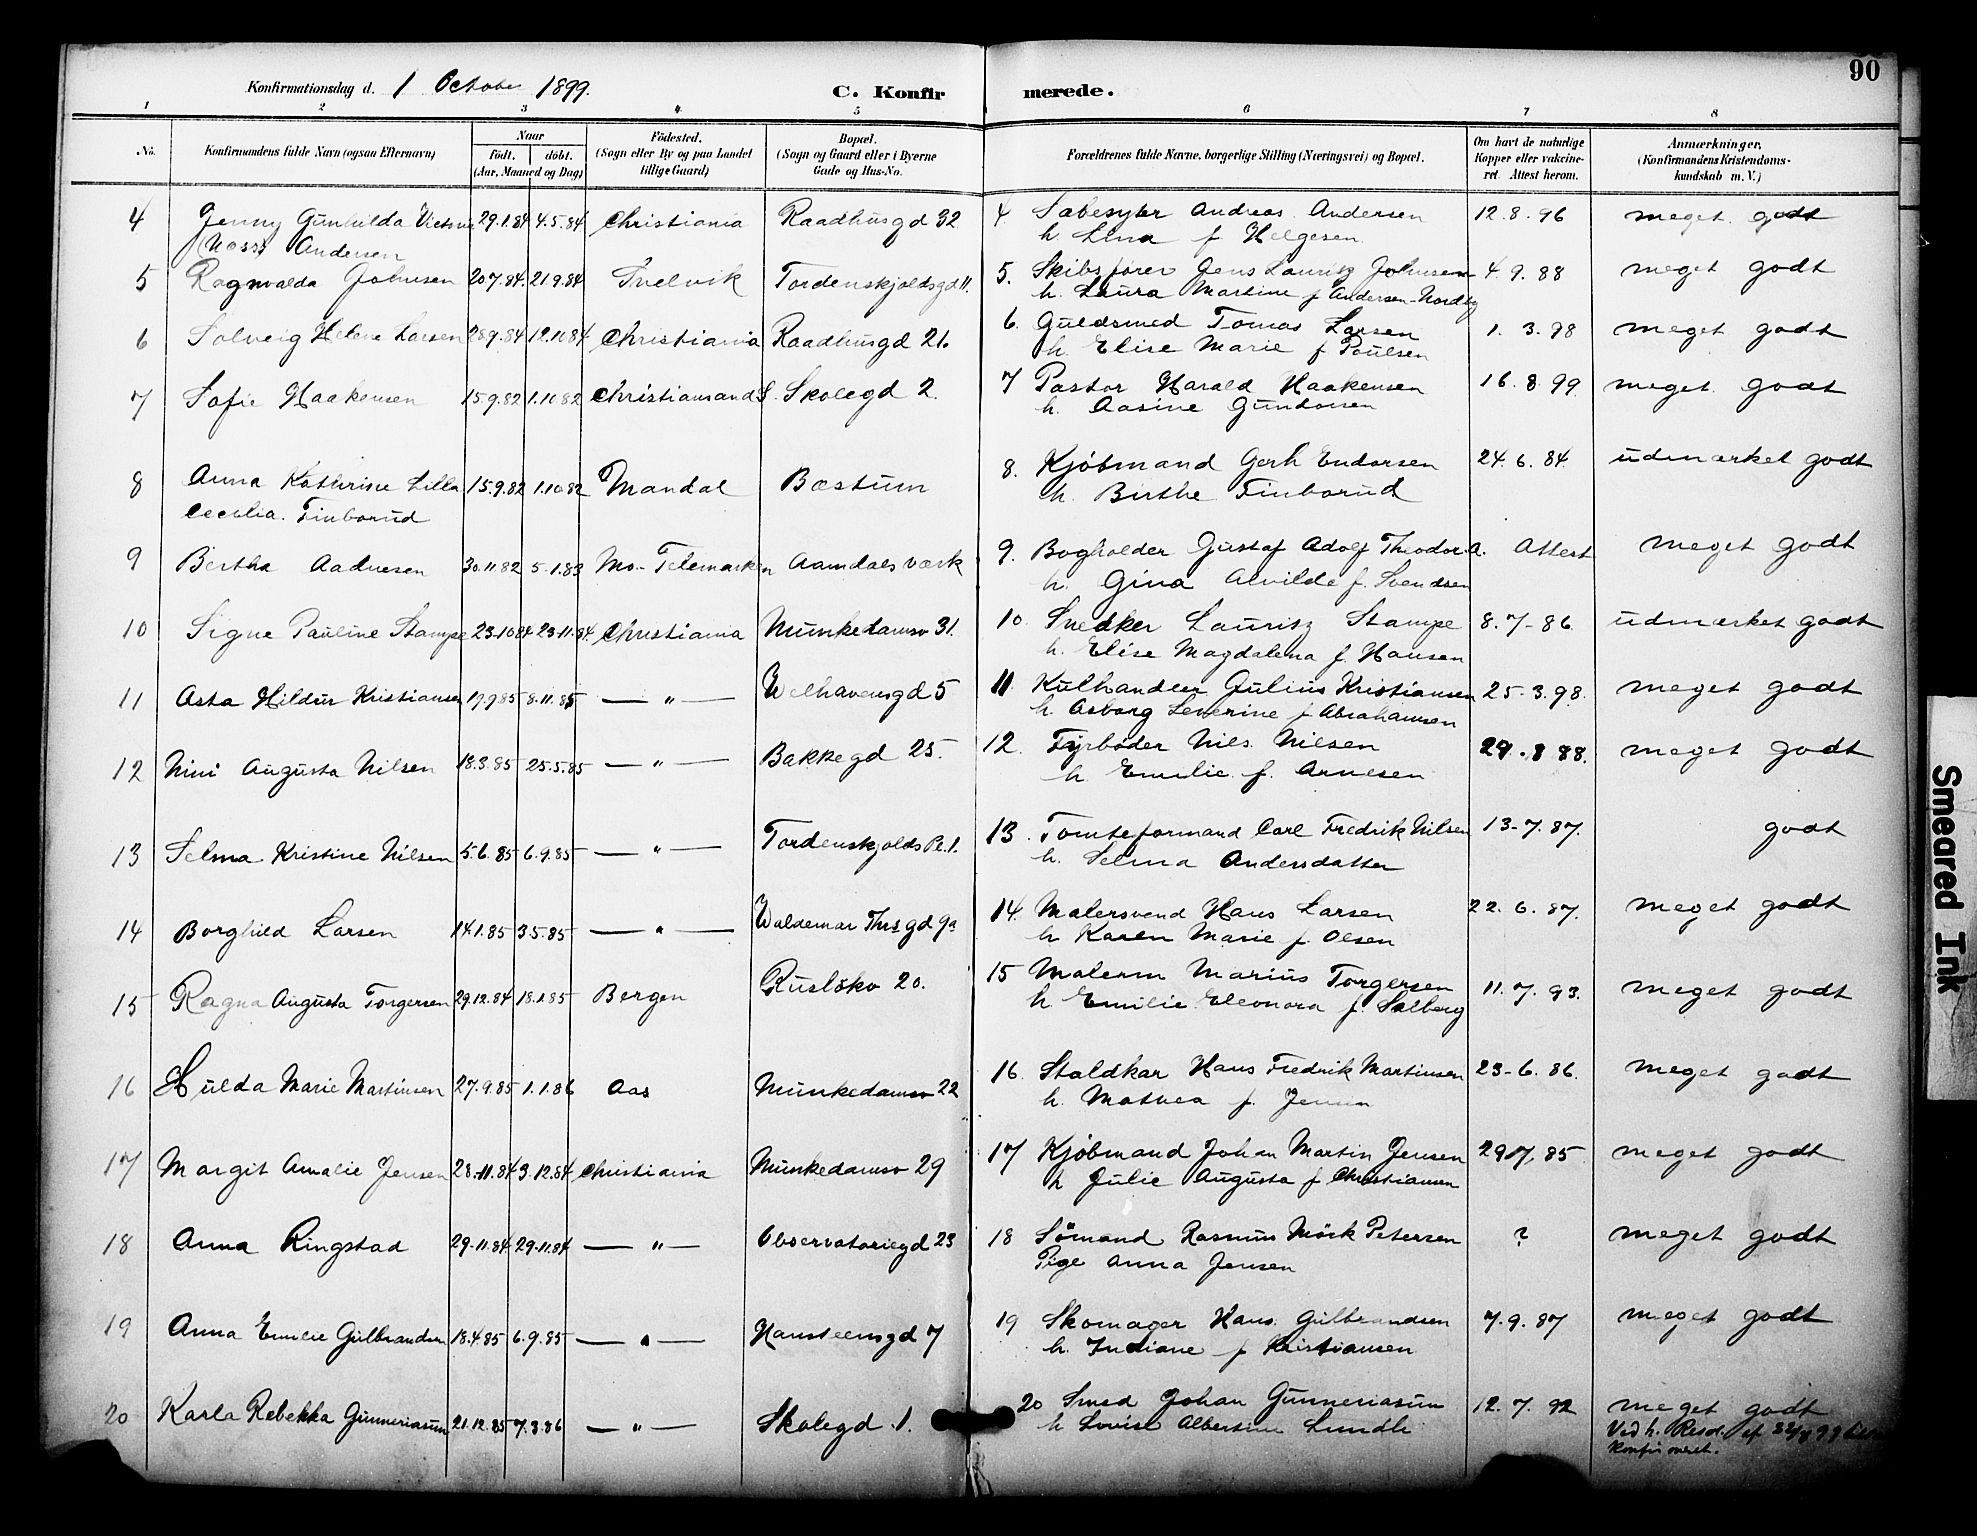 90
Konfirmationsdag d. 1 October 1899.
C. Konfirmerede.
1 2 3 4 5 6 7 8
No.
Konfirmandens fulde Navn (ogsaa Efternavn)
Naar
födt. döbt.
(Aar, Maaned og Dag)
Födested.
(Sogn eller By og paa Landet
tillige Gaard)
Bopæl.
(Sogn og Gaard eller i Byerne
Gade og Hus-No.
Forældrenes fulde Navne, borgerlige Stilling (Næringsvei) og Bopæl.
Om havt de naturlige
Kopper eller vakcine-
ret. Attest herom.
Anmærkninger,
(Konfirmandens Kristendoms-
kundskab m. V.)
4 Jenny Gunhilda 29.1.84 4.5.84 Christiania Raadhusgd 32 4. Andreas Andersen 12.8.96 meget godt
Andersen h. Lina f Helgesen
5 Ragnvalda Johnsen 20.7.84. 21.9.84 Svelvik Tordenskjoldsgd 11. 5. Skibsfører Jens Lauritz Johnsen 4.9.88 meget godt
h. Laura Martine f Andersen-Nordby
6 Solveig Helene Larsen 28.9.84 12.10.84 Christiania Raadhusgd 21. 6. Guldsmed Tomas Larsen 1.3.98 meget godt
h. Elise Marie f Poulsen
7 Sofie Haakensen 15.9.82 1.10.82 Christiansand S. Skolegd 2. 7 Pastor Harald Haakensen 16.8.99 meget godt
h. Aasine Gundersen
8 Anna Kathrine Lilla 15.9.82 1.10.82 Mandal Bæstum 8. Kjöbmand Gerh Endorsen 24.6.84. udmærket godt
Cecelia. Finborud h. Birthe Finborud
9 Bertha Aadnesen 30.11.82 5.1.83 Mo-Telemarken Aamdals værk 9. Bogholder Gustaf Adolf Theodor A. Attest meget godt
h. Gina Alvilde f. Svendsen
10 Signe Pauline Stampe 23.10.84 23.11.84 Christiania Munkedamsv 31. 10. Snedker Lauritz Stampe 8.7-86 udmærket godt
h. Elise Magdalena f. Hansen
11 Asta Hildur Kristiansen 19.9.85 8.11.85 — „ — Welhavensgd 5 11. Kulhandler Julius Kristiansen 25.3.98. meget godt
h. Asborg Severine f Abrahamsen
12 Nini Augusta Nilsen 18.3.85 25.5.85 — „ — Bakkegd 25. 12. Fyrböder Nils Nilsen 29.8 88. meget godt
h Emilie f. Arnesen
13 Selma Kristine Nilsen 5.6.85 6.9.85 — „ — Tordenskjolds Pl.1. 13. Tomteformand Carl Fredrik Nilsen 13-7.87. godt
h. Selma Andersdatter
14 Borghild Larsen 14.1.85 3.5.85 — „ — Waldemar Thrs gd 9a 14. Malersvend Hans Larsen 22.6.87. meget godt
h Karen Marie f. Olsen
15 Ragna Augusta Torgersen 29.12.84 18.1.85 Bergen Ruslökv 20. 15 Malerm Marius Torgersen 11.7.93. meget godt
h. Emilie Eleonora f. Solberg
16 Hulda Marie Martinsen 27.9.85 1.1.86 Aas Munkedamsv 22 16. Staldkar Hans Fredrik Martinsen 23-6.86. meget godt
h. Mathea f. Jensen
17 Margit Amalie Jensen 28.11.84 3.12.84 Christiania Munkedamsv 29 17 Kjöbmand Johan Martin Jensen 29.7.85 meget godt
h Julie Augusta f Christiansen
18 Anna Ringstad 29.11.84 29.11.84 — „ — Observatoriegd 23 18 Sömand Rasmus Mörk Petersen ? meget godt
Pige Anna Jensen
19 Anna Emilie Gulbrandsen 18.4.85 6.9.85 — „ — Hansteensgd 7 19 Skomager Hans Gulbrandsen 7.9.87 meget godt
h. Indiane f Kristiansen
20 Karla Rebekka Gunneriasun 21.12.85 7.3.86 — „ — Skolegd 1. 20 Smed Johan Gunneriasun 12.7.92 meget godt
h Lovise Albertine Lundli Ved h. Resol. af 22/8 99
konfirmeret.
Smeared Ink